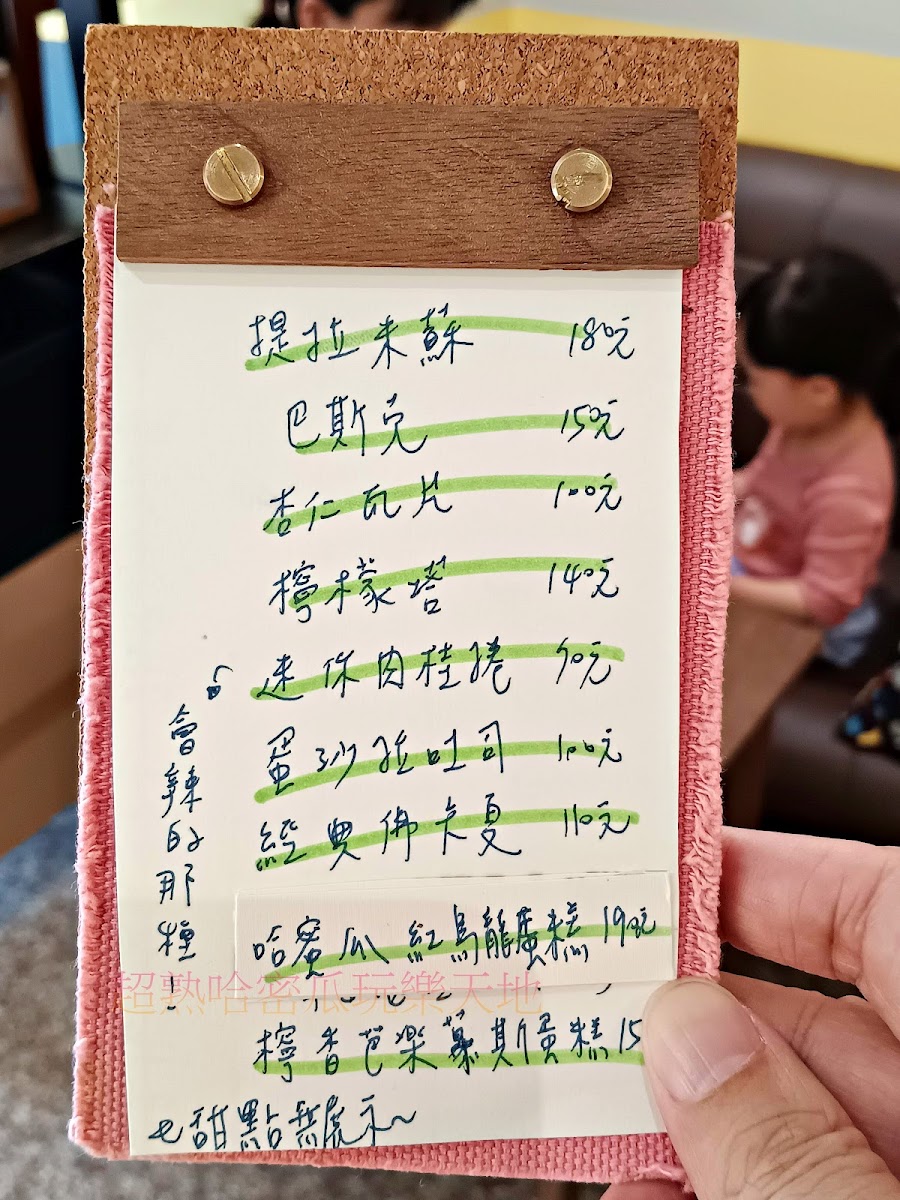 提拉米蘇 180元
巴斯克 150元
杏仁瓦片 100元
檸檬塔 140元
迷你肉桂捲 90元
蛋沙拉吐司 100元
經典佛卡夏 110元
哈蜜瓜 紅烏龍蛋糕 190元
檸香芭樂慕斯蛋糕 15
甜點展示
會辣的那種!
超熟哈密瓜玩樂天地